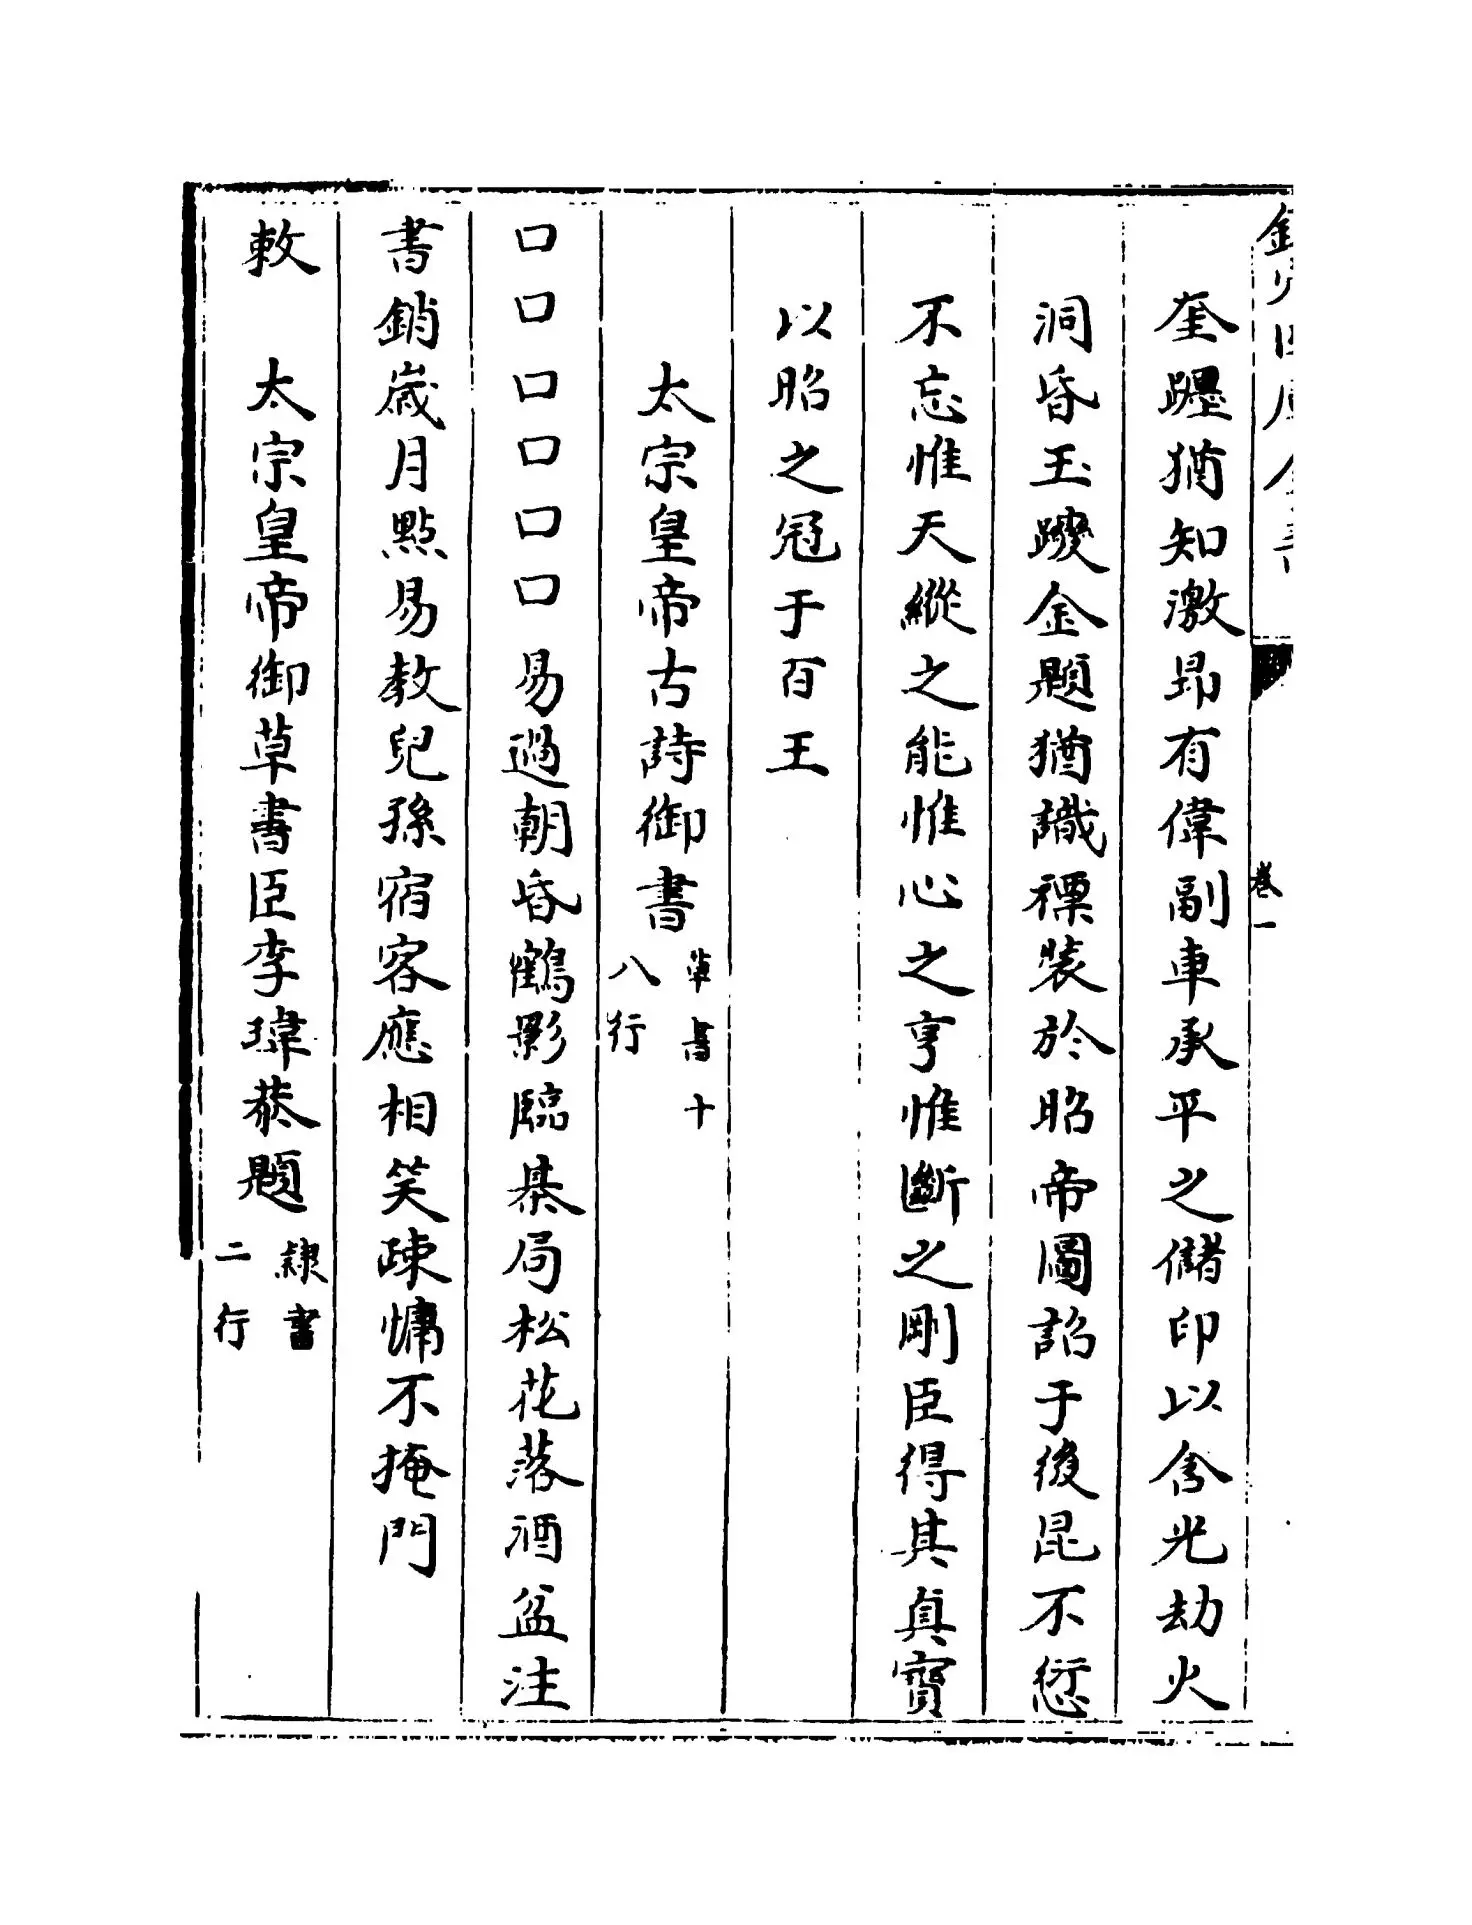 欽定四庫全書
卷一
奎躔猶知激昂有偉副車承平之儲印以含光劫火
洞昏玉躞金題猶識褾裝於昭帝圖詒于後昆不愆
不忘惟天縱之能惟心之亨惟斷之剛臣得其真寶
以昭之冠于百王
太宗皇帝古詩御書草書十八行
□□□□□□易過朝昏鶴影臨棊局松花落酒盆注
書銷歲月點易教兒孫宿客應相笑疎慵不掩門
敕　太宗皇帝御草書臣李瑋恭題隸書二行